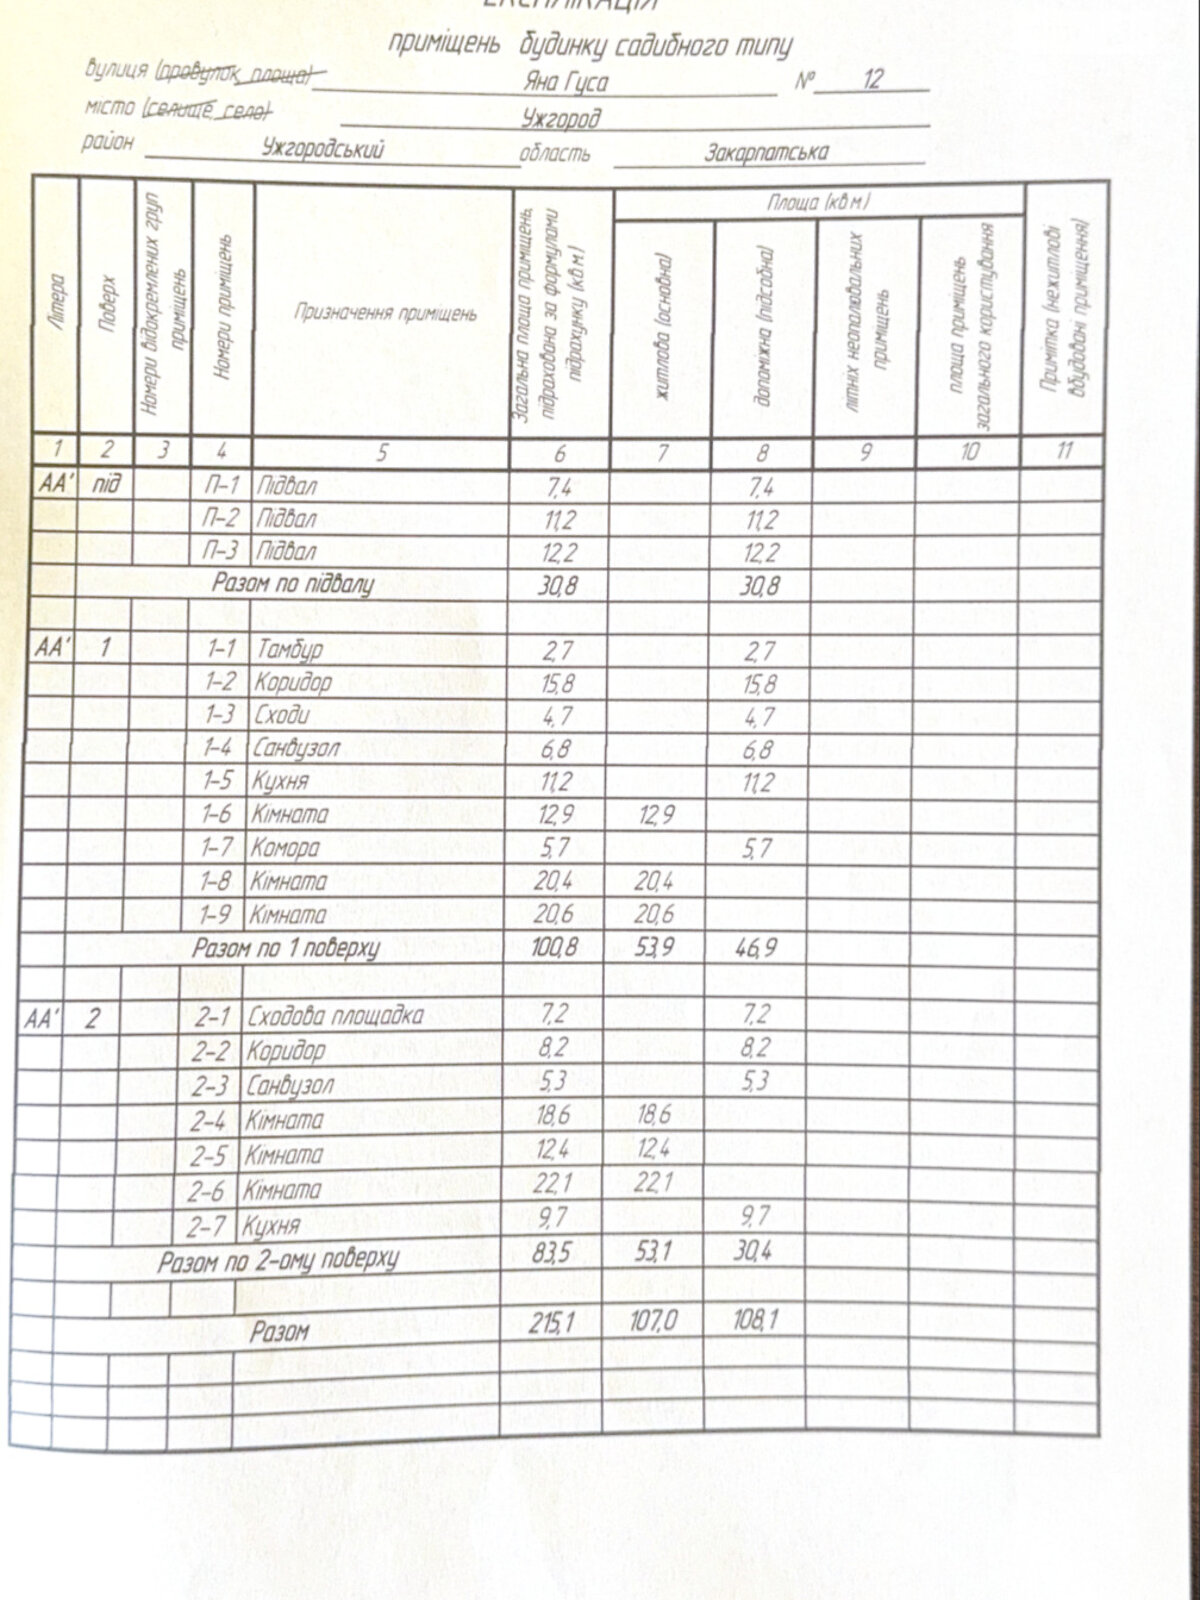 ЕКСПЛІКАЦІЯ
приміщень будинку садибного типу
вулиця (провулок, площа) Яна Гуса № 12
місто (селище, село) Ужгород
район Ужгородський область Закарпатська
Літера
Поверх
Номери відокремлених груп приміщень
Номери приміщень
Призначення приміщень
Загальна площа приміщень, підрахована за формулами підрахунку (кв.м.)
Площа (кв.м.)
житлова (основна)
допоміжна (підсобна)
літніх неопалювальних приміщень
площа приміщень загального користування
Примітка (нежитлові вбудовані приміщення)
1 2 3 4 5 6 7 8 9 10 11
АА' під П-1 Підвал 7,4 7,4
П-2 Підвал 11,2 11,2
П-3 Підвал 12,2 12,2
Разом по підвалу 30,8 30,8
АА' 1 1-1 Тамбур 2,7 2,7
1-2 Коридор 15,8 15,8
1-3 Сходи 4,7 4,7
1-4 Санвузол 6,8 6,8
1-5 Кухня 11,2 11,2
1-6 Кімната 12,9 12,9
1-7 Комора 5,7 5,7
1-8 Кімната 20,4 20,4
1-9 Кімната 20,6 20,6
Разом по 1 поверху 100,8 53,9 46,9
АА' 2 2-1 Сходова площадка 7,2 7,2
2-2 Коридор 8,2 8,2
2-3 Санвузол 5,3 5,3
2-4 Кімната 18,6 18,6
2-5 Кімната 12,4 12,4
2-6 Кімната 22,1 22,1
2-7 Кухня 9,7 9,7
Разом по 2-ому поверху 83,5 53,1 30,4
Разом 215,1 107,0 108,1